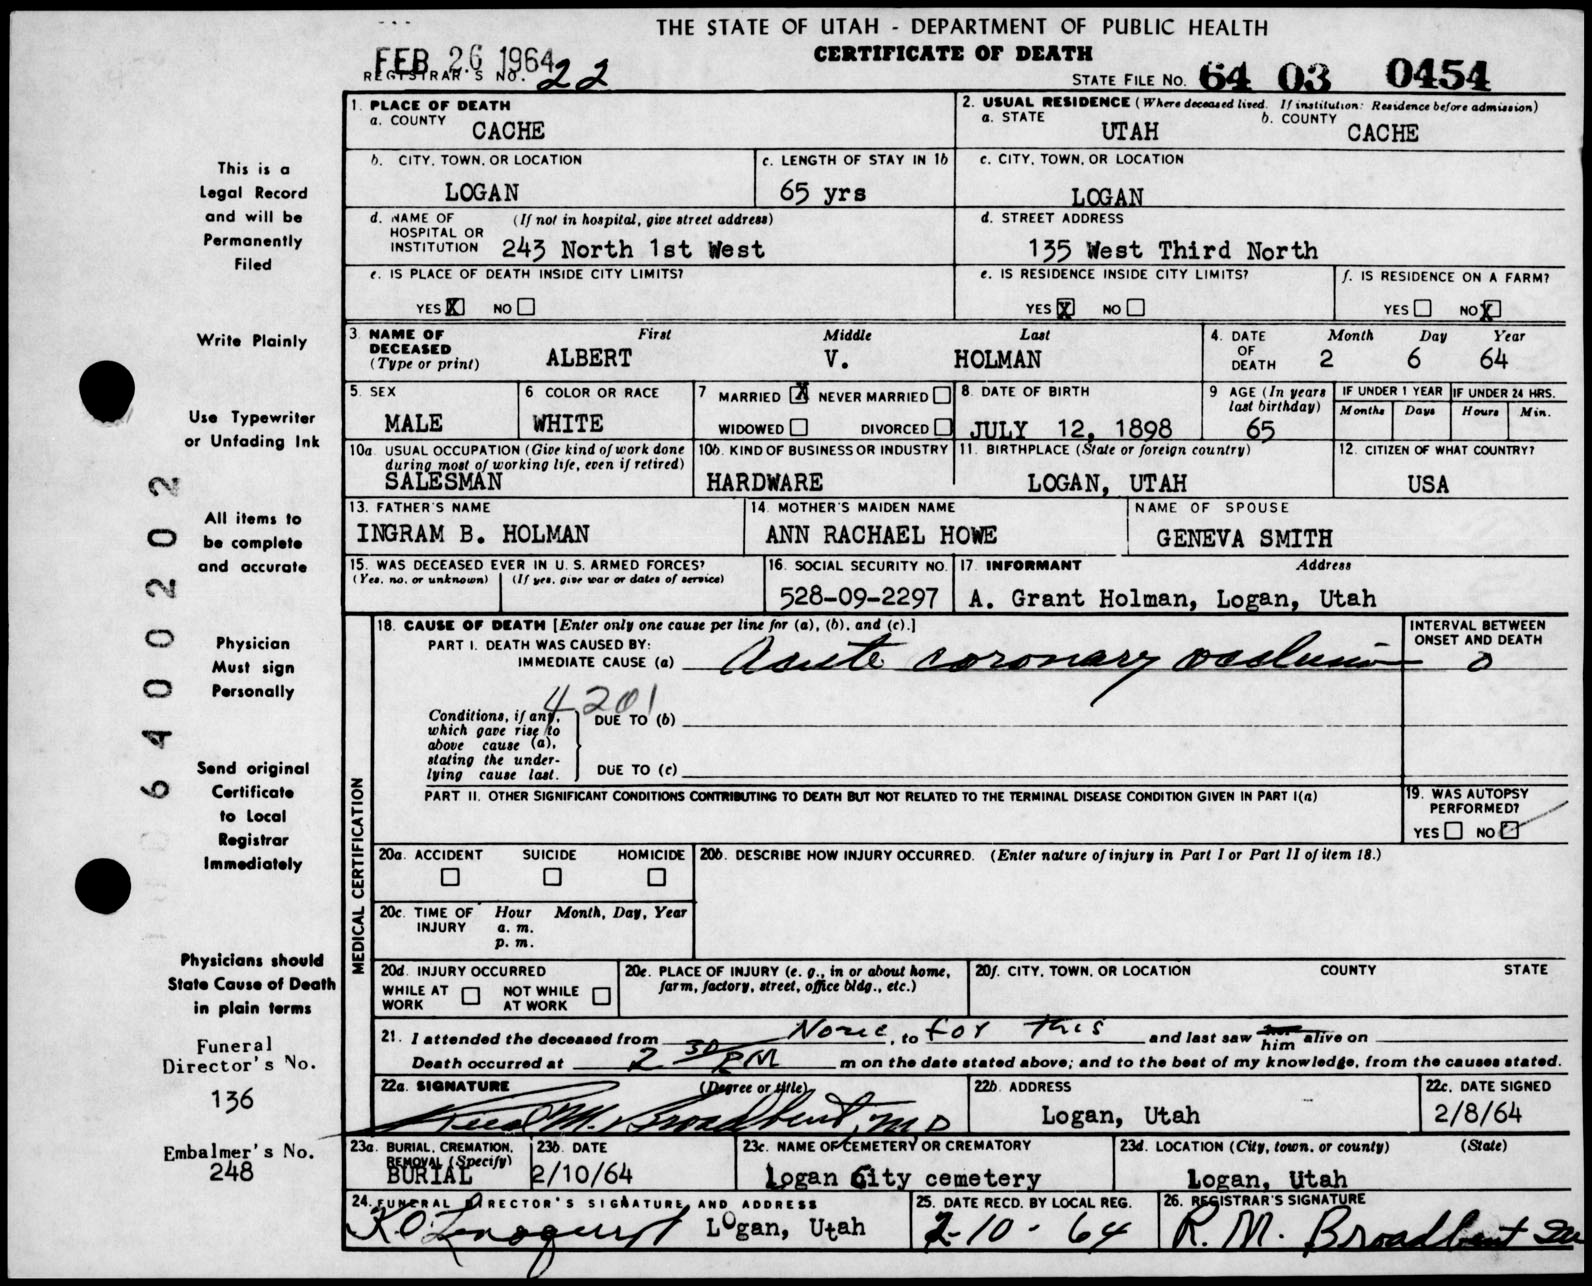 THE STATE OF UTAH - DEPARTMENT OF PUBLIC HEALTH
CERTIFICATE OF DEATH
FEB 26 1964
REGISTRAR'S NO. 22
STATE FILE NO. 64 03 0454
This is a
Legal Record
and will be
Permanently
Filed
Write Plainly
Use Typewriter
or Unfading Ink
All items to
be complete
and accurate
Physician
Must sign
Personally
Send original
Certificate
to Local
Registrar
Immediately
Physicians should
State Cause of Death
in plain terms
Funeral
Director's No.
136
Embalmer's No.
248
6400202
1. PLACE OF DEATH
a. COUNTY
CACHE
2. USUAL RESIDENCE (Where deceased lived. If institution: Residence before admission)
a. STATE b. COUNTY
UTAH CACHE
b. CITY, TOWN, OR LOCATION
LOGAN
c. LENGTH OF STAY IN 1b
65 yrs
c. CITY, TOWN, OR LOCATION
LOGAN
d. NAME OF (If not in hospital, give street address)
HOSPITAL OR
INSTITUTION 243 North 1st West
d. STREET ADDRESS
135 West Third North
e. IS PLACE OF DEATH INSIDE CITY LIMITS?
YES X NO
e. IS RESIDENCE INSIDE CITY LIMITS?
YES X NO
f. IS RESIDENCE ON A FARM?
YES NO X
3. NAME OF DECEASED (Type or print)
First Middle Last
ALBERT V. HOLMAN
4. DATE OF DEATH
Month Day Year
2 6 64
5. SEX
MALE
6 COLOR OR RACE
WHITE
7 MARRIED X NEVER MARRIED
WIDOWED DIVORCED
8. DATE OF BIRTH
JULY 12, 1898
9 AGE (In years
last birthday)
65
IF UNDER 1 YEAR IF UNDER 24 HRS.
Months Days Hours Min.
10a. USUAL OCCUPATION (Give kind of work done
during most of working life, even if retired)
SALESMAN
10b. KIND OF BUSINESS OR INDUSTRY
HARDWARE
11. BIRTHPLACE (State or foreign country)
LOGAN, UTAH
12. CITIZEN OF WHAT COUNTRY?
USA
13. FATHER'S NAME
INGRAM B. HOLMAN
14. MOTHER'S MAIDEN NAME
ANN RACHAEL HOWE
NAME OF SPOUSE
GENEVA SMITH
15. WAS DECEASED EVER IN U. S. ARMED FORCES?
(Yes, no, or unknown) (If yes, give war or dates of service)
16. SOCIAL SECURITY NO.
528-09-2297
17. INFORMANT Address
A. Grant Holman, Logan, Utah
MEDICAL CERTIFICATION
18. CAUSE OF DEATH [Enter only one cause per line for (a), (b), and (c).]
PART I. DEATH WAS CAUSED BY:
IMMEDIATE CAUSE (a) Acute coronary occlusion
INTERVAL BETWEEN
ONSET AND DEATH
0
4201
Conditions, if any,
which gave rise to
above cause (a),
stating the under-
lying cause last.
DUE TO (b)
DUE TO (c)
PART II. OTHER SIGNIFICANT CONDITIONS CONTRIBUTING TO DEATH BUT NOT RELATED TO THE TERMINAL DISEASE CONDITION GIVEN IN PART I(a)
19. WAS AUTOPSY
PERFORMED?
YES NO
20a. ACCIDENT SUICIDE HOMICIDE
20b. DESCRIBE HOW INJURY OCCURRED. (Enter nature of injury in Part I or Part II of item 18.)
20c. TIME OF INJURY
Hour Month, Day, Year
a. m.
p. m.
20d. INJURY OCCURRED
WHILE AT WORK NOT WHILE AT WORK
20e. PLACE OF INJURY (e. g., in or about home,
farm, factory, street, office bldg., etc.)
20f. CITY, TOWN, OR LOCATION COUNTY STATE
21. I attended the deceased from None, to for this and last saw him alive on
Death occurred at 2 30 PM m on the date stated above; and to the best of my knowledge, from the causes stated.
22a. SIGNATURE (Degree or title)
Reed M. Broadbent, MD
22b. ADDRESS
Logan, Utah
22c. DATE SIGNED
2/8/64
23a. BURIAL, CREMATION,
REMOVAL (Specify)
BURIAL
23b. DATE
2/10/64
23c. NAME OF CEMETERY OR CREMATORY
Logan City cemetery
23d. LOCATION (City, town, or county) (State)
Logan, Utah
24. FUNERAL DIRECTOR'S SIGNATURE AND ADDRESS
Logan, Utah
25. DATE RECD. BY LOCAL REG.
2-10-64
26. REGISTRAR'S SIGNATURE
R. M. Broadbent